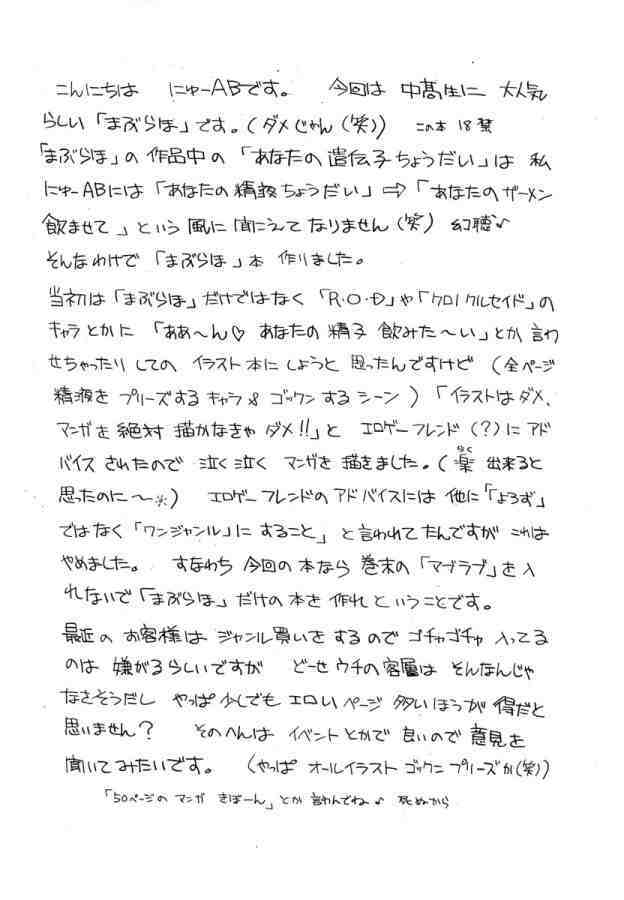 こんにちは にゅーABです。 今回は 中高生に 大人気
らしい「まぶらほ」です。(ダメじゃん(笑)) この本 18禁
「まぶらほ」の 作品中の「あなたの遺伝子ちょうだい」は 私
にゅーABには「あなたの精液ちょうだい」⇒「あなたのザーメン
飲ませて」という 風に 聞こえて なりません(笑) 幻聴♪
そんなわけで「まぶらほ」本 作りました。
当初は「まぶらほ」だけではなく「R・O・D」や「クロノクルセイド」の
キャラ とかに 「ああ〜ん♡ あなたの 精子 飲みた〜い」とか 言わ
せちゃったり しての イラスト本に しようと 思ったんですけど (全ページ
精液を プリーズする キャラ & ゴックンする シーン)「イラストはダメ、
マンガを 絶対 描かなきゃ ダメ!!」と エロゲーフレンド(?)に アド
バイス されたので 泣く泣く マンガを 描きました。(楽 出来ると
らく
思ったのに〜) エロゲーフレンドの アドバイスには 他に「「よろず」
ではなく「ワンジャンル」に すること」と言われてたんですが これは
やめました。 すなわち 今回の 本なら 巻末の「マブラブ」を 入
れないで「まぶらほ」だけの 本を 作れ ということです。
最近の お客様は ジャンル買いを するので ゴチャゴチャ 入ってる
のは 嫌がるらしいですが どーせ ウチの 客層は そんなんじゃ
なさそうだし やっぱ 少しでも エロい ページ 多いほうが 得だと
思いません? そのへんは イベントとかで 良いので 意見を
聞いてみたいです。 (やっぱ オールイラスト ゴックン プリーズか(笑))
「50ページの マンガ きぼーん」とか 言わんでね♪ 死ぬから